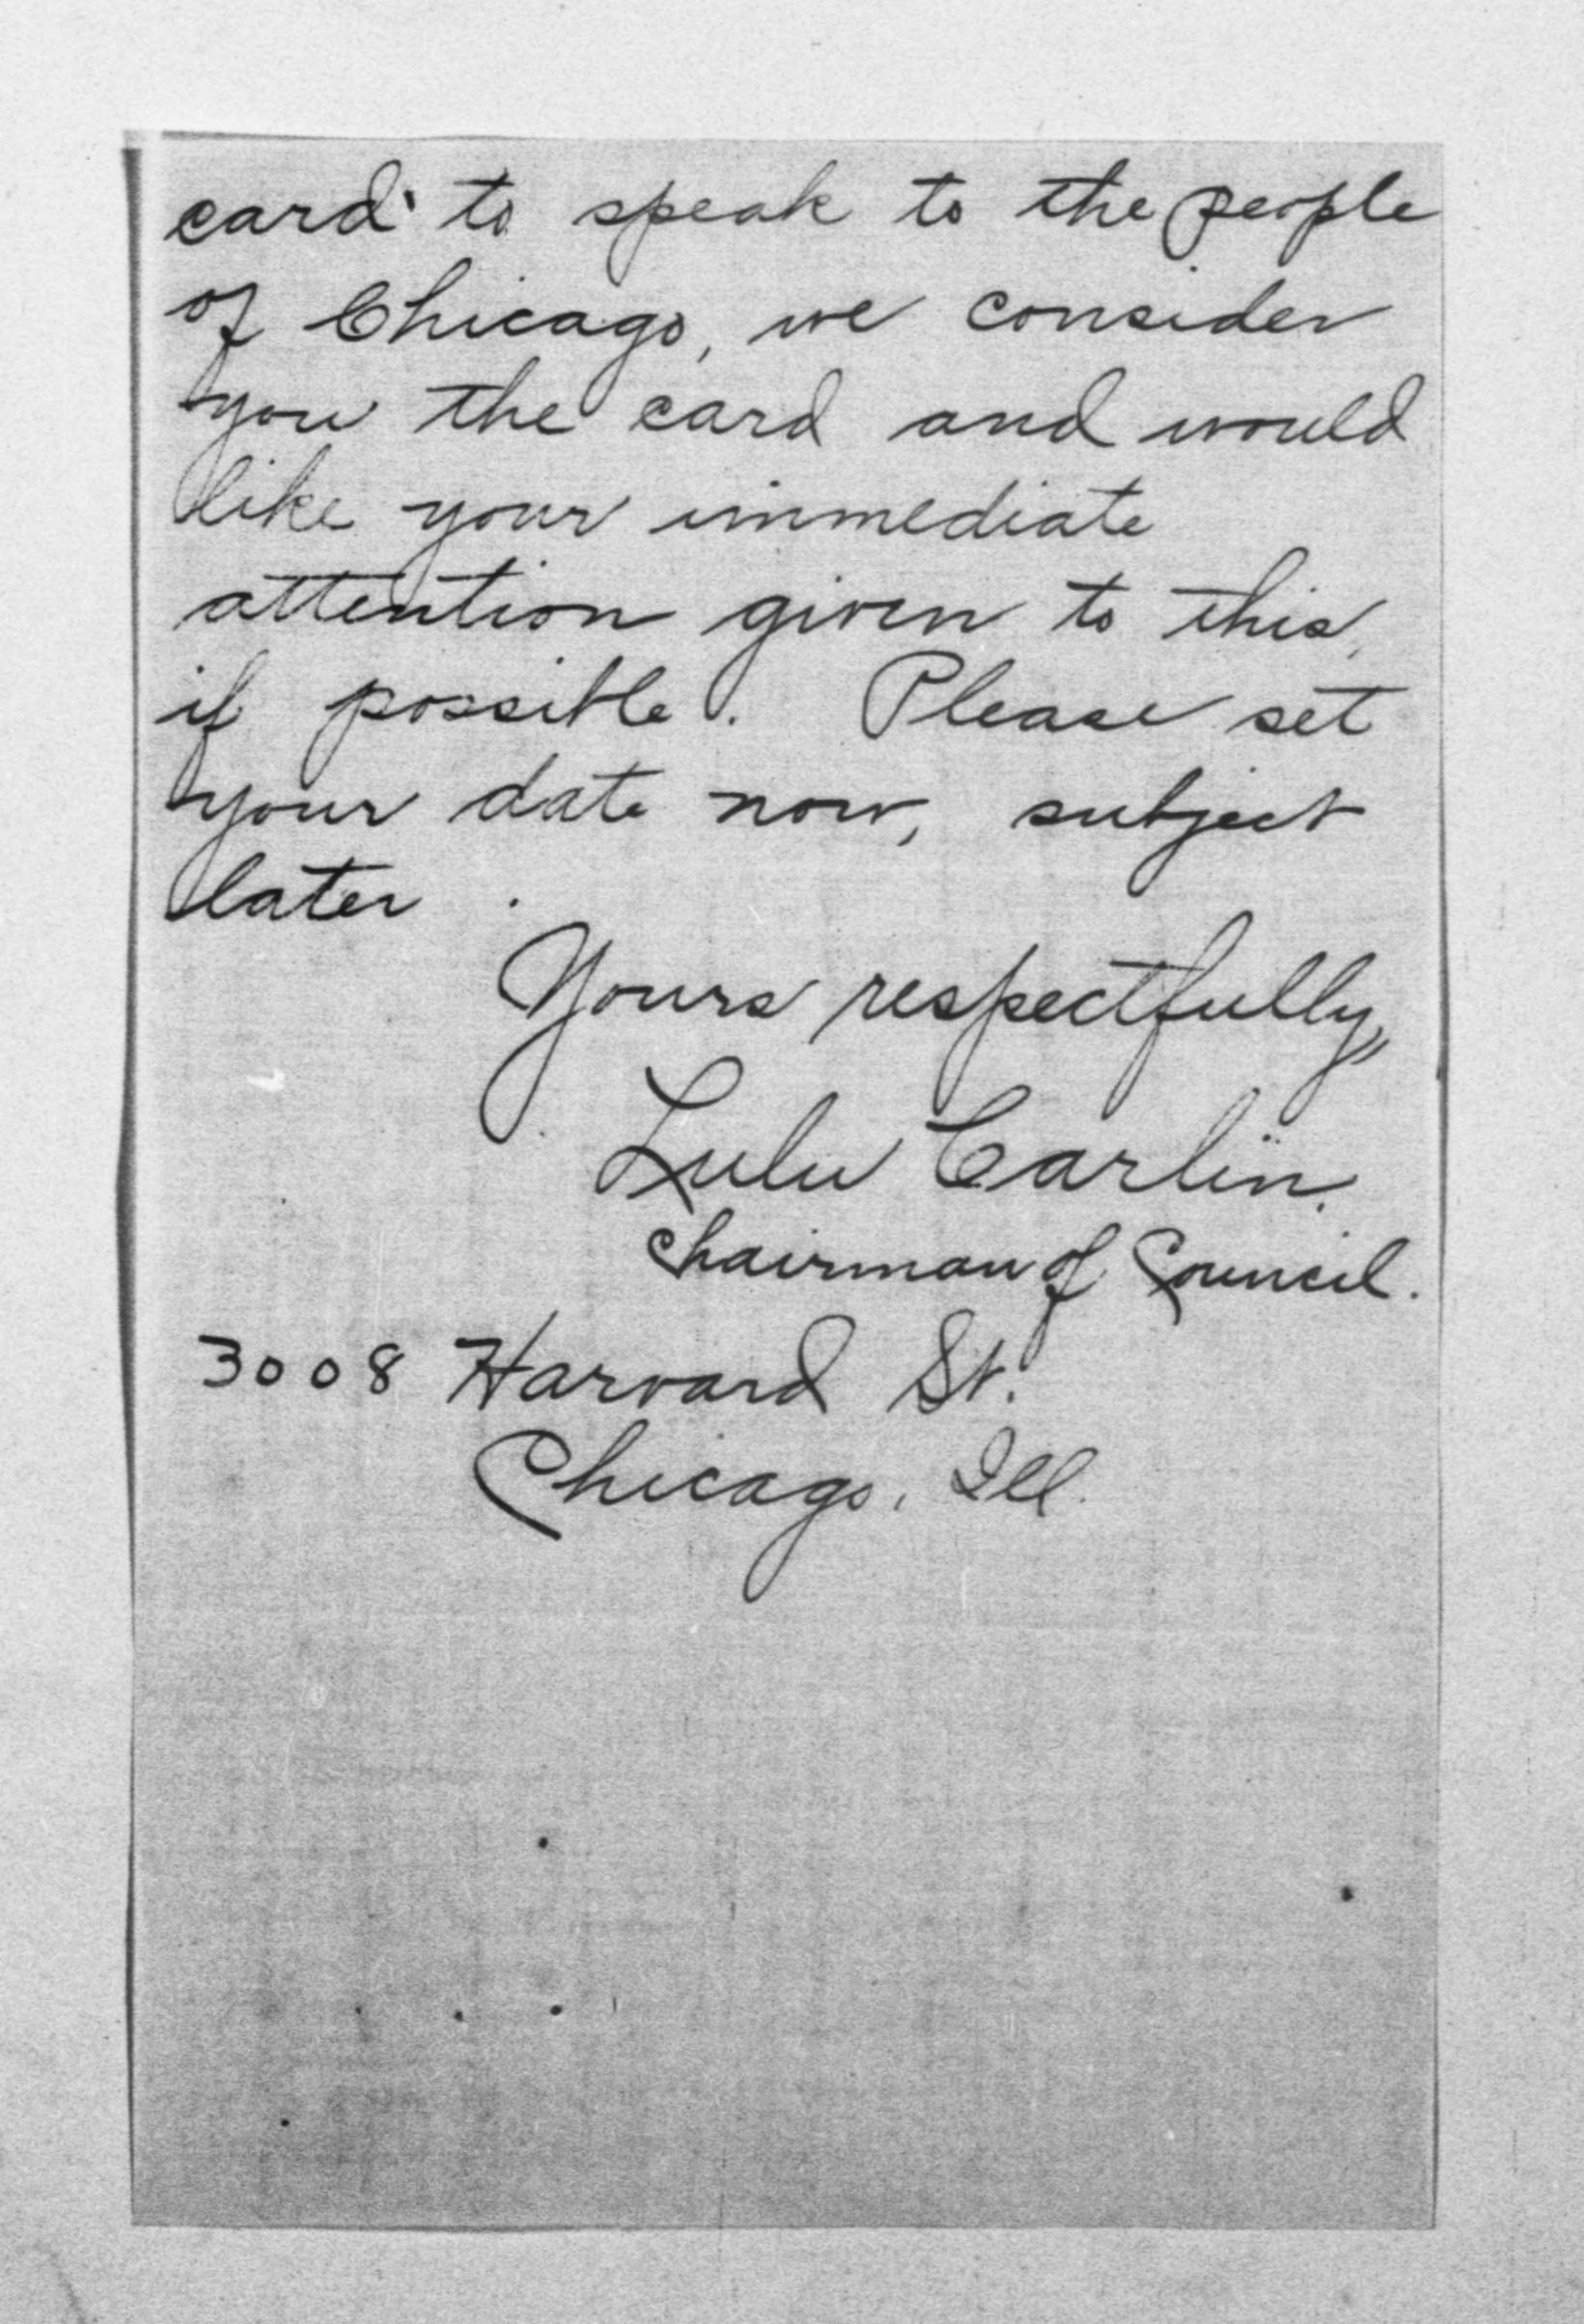 card' to speak to the people
of Chicago, we consider
you the card and would
like your immediate
attention given to this,
if possible. Please set
your date now, subject
later.
Yours respectfully,
Lulu Carlin.
Chairman of Council.
3008 Harvard St.
Chicago, Ill.